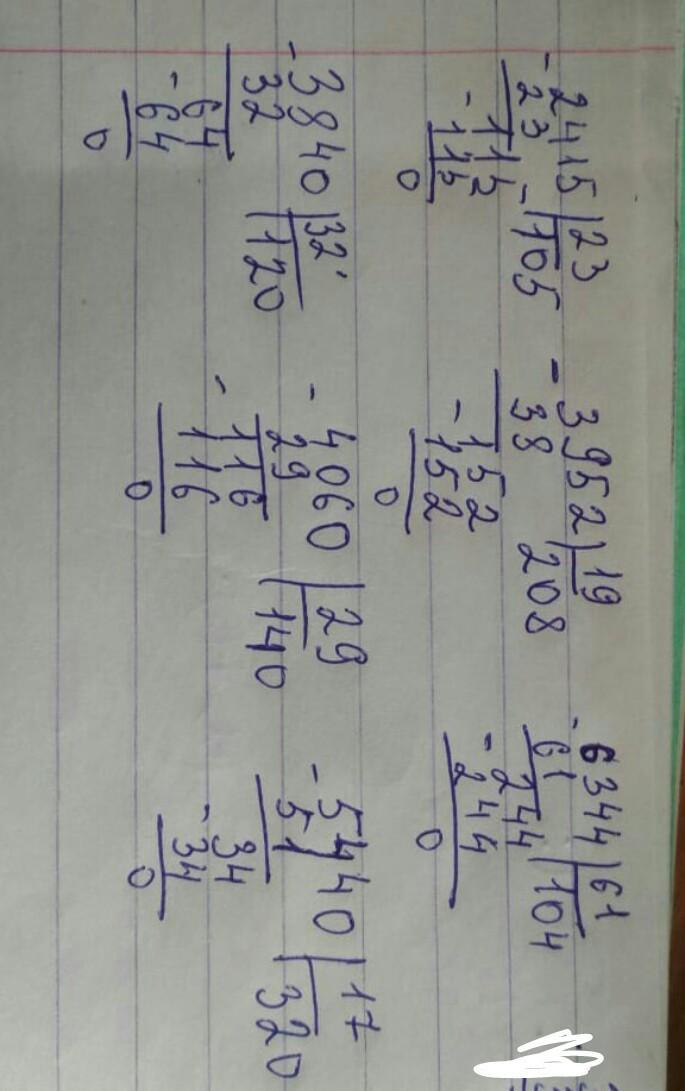 - 2415 | 23
23 | 105
- 115
115
0
- 3952 | 19
38 | 208
- 152
152
0
- 6344 | 61
61 | 104
- 244
244
0
- 3840 | 32
32 | 120
- 64
64
0
- 4060 | 29
29 | 140
- 116
116
0
- 5440 | 17
51 | 320
- 34
34
0